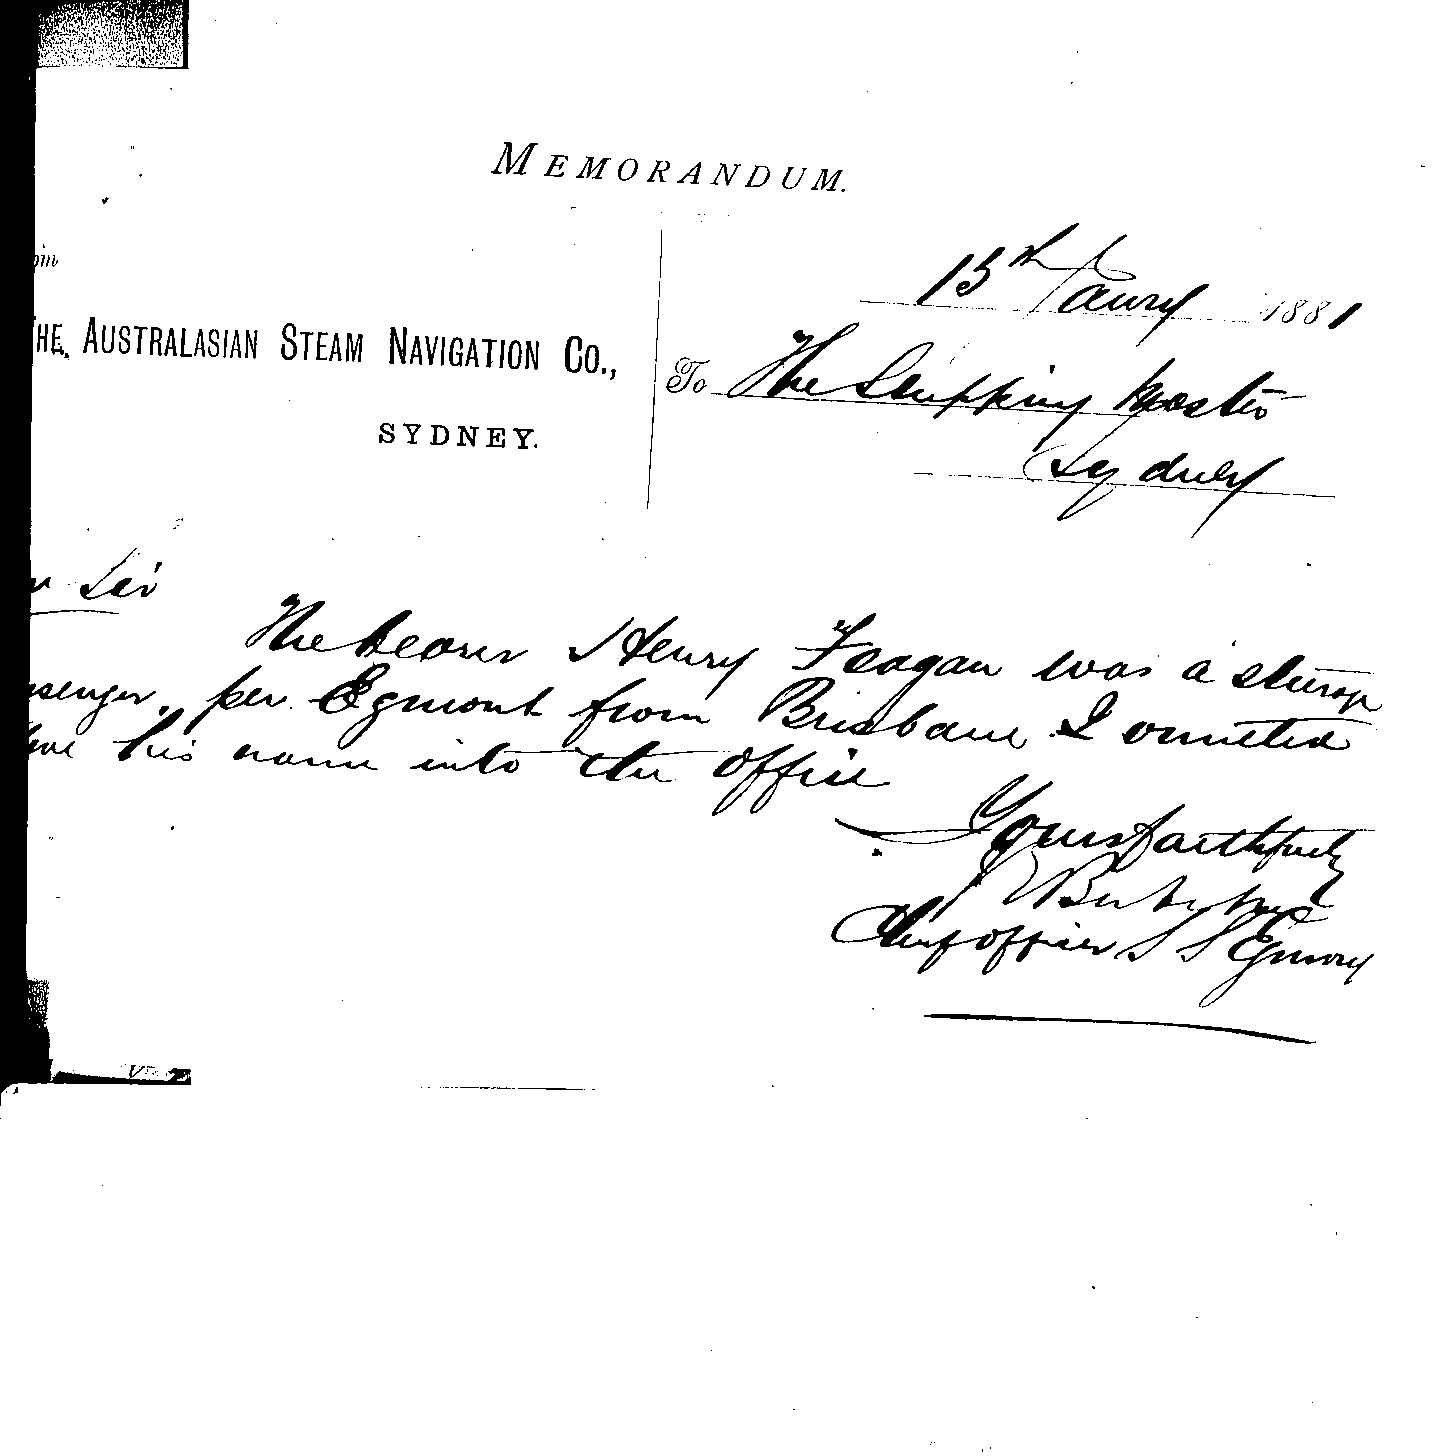 MEMORANDUM.
15th Janry 1881
THE AUSTRALASIAN STEAM NAVIGATION CO.,
To The Shipping Master
SYDNEY.
Sydney
Sir
The bearer Henry Feagan was a steerage
per Egmont from Brisbane I omitted
his name into the office
Yours faithfully
Chief officer S S Egmont